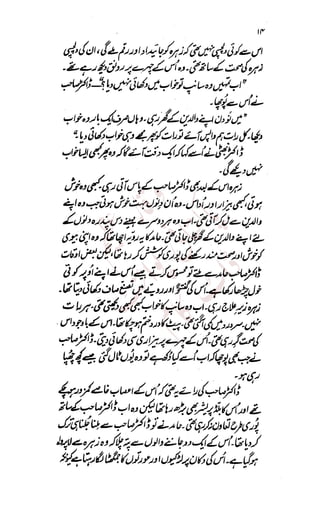 ۱۴
اس سے کوئی دلچسپی نہیں تھی کہ زہرہ کو جائیداد اور رقم ملے گی، ان کی دلچسپی
زہرہ کی صحت کے ساتھ تھی۔ وہ اُس کے چہرے پر رونق دیکھ رہے تھے۔
"اب تمہیں وہ سانپ تو خواب میں دکھائی نہیں دیا؟"۔ ڈاکٹر صاحب
نے اُس سے پوچھا۔
"میں نو دن اپنے والدین کے گھر رہی۔ وہاں صرف ایک بار وہ خواب
دیکھا۔ کل رات ہم واپس آئے تو رات کو پھر مجھے وہی خواب دکھائی دیا۔"
ڈاکٹر نے اُسے کہا کہ ایک وقت آئے گا کہ وہ پھر کبھی ایسا خواب
نہیں دیکھے گی۔
زہرہ اس کے بعد بھی ڈاکٹر صاحب کے پاس آتی رہی۔ کبھی وہ خوش
ہوتی، کبھی بیزار اور اُداس۔ وہ اُن دنوں بہت خوش ہوتی جب وہ اپنے
والدین سے مل کر آتی تھی۔ اب وہ ہر دوسرے مہینے دس پندرہ دنوں کے
لئے اپنے والدین کے گھر چلی جاتی تھی۔ حامد کا یہ رویہ اچھا تھا کہ وہ اپنی بیوی
کو خوش اور صحت مند رکھنے کی پوری کوشش کر رہا تھا، لیکن بعض اوقات
ڈاکٹر صاحب حامد سے ملتے تو محسوس کرتے جیسے اُس نے اپنے اُوپر کوئی
خول چڑھا رکھا ہے۔ اُس کی گفتگو اور رویے میں تصنع صاف دکھائی دیتا تھا۔
زہرہ زیرِ علاج رہی۔ اب وہ سانپ کا خواب کبھی کبھی دیکھتی تھی۔ ہر رات
نہیں۔ سر درد میں کمی آگئی تھی۔ پیٹ کا درد ختم ہو چکا تھا۔ اس کے باوجود اس
کی صحت گر رہی تھی۔ اُس کے چہرے پر بیزاری سی دکھائی دیتی۔ ڈاکٹر صاحب
نے جب بھی پوچھا کہ اب اُسے کیا دُکھ ہے تو وہ یوں ٹال گئی جیسے کچھ چھپا
رہی ہو۔
ڈاکٹر صاحب کی رائے یہ تھی کہ اُس کے اعصاب خاصے کمزور ہو چکے
تھے اور اُس کا بلڈ پریشر بھی بڑھ رہا تھا لیکن وہ اب ڈاکٹر صاحب کے ساتھ
پوری طرح تعاون نہ کر رہی تھی۔ حامد نے تو ڈاکٹر صاحب سے ملنا جلنا ہی ترک
کر دیا تھا۔ اُس کے ایک دو جاننے والوں سے پتہ چلا کہ وہ زہرہ سے لاپروا
ہو گیا ہے۔ اُس کی دکان پر لڑکیوں اور عورتوں کا جمگھٹا لگا رہتا ہے کیونکہ